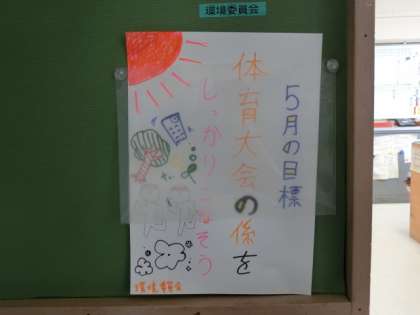 環境委員会
5月の目標
体育大会の係を
しっかりこなそう
環境委員会